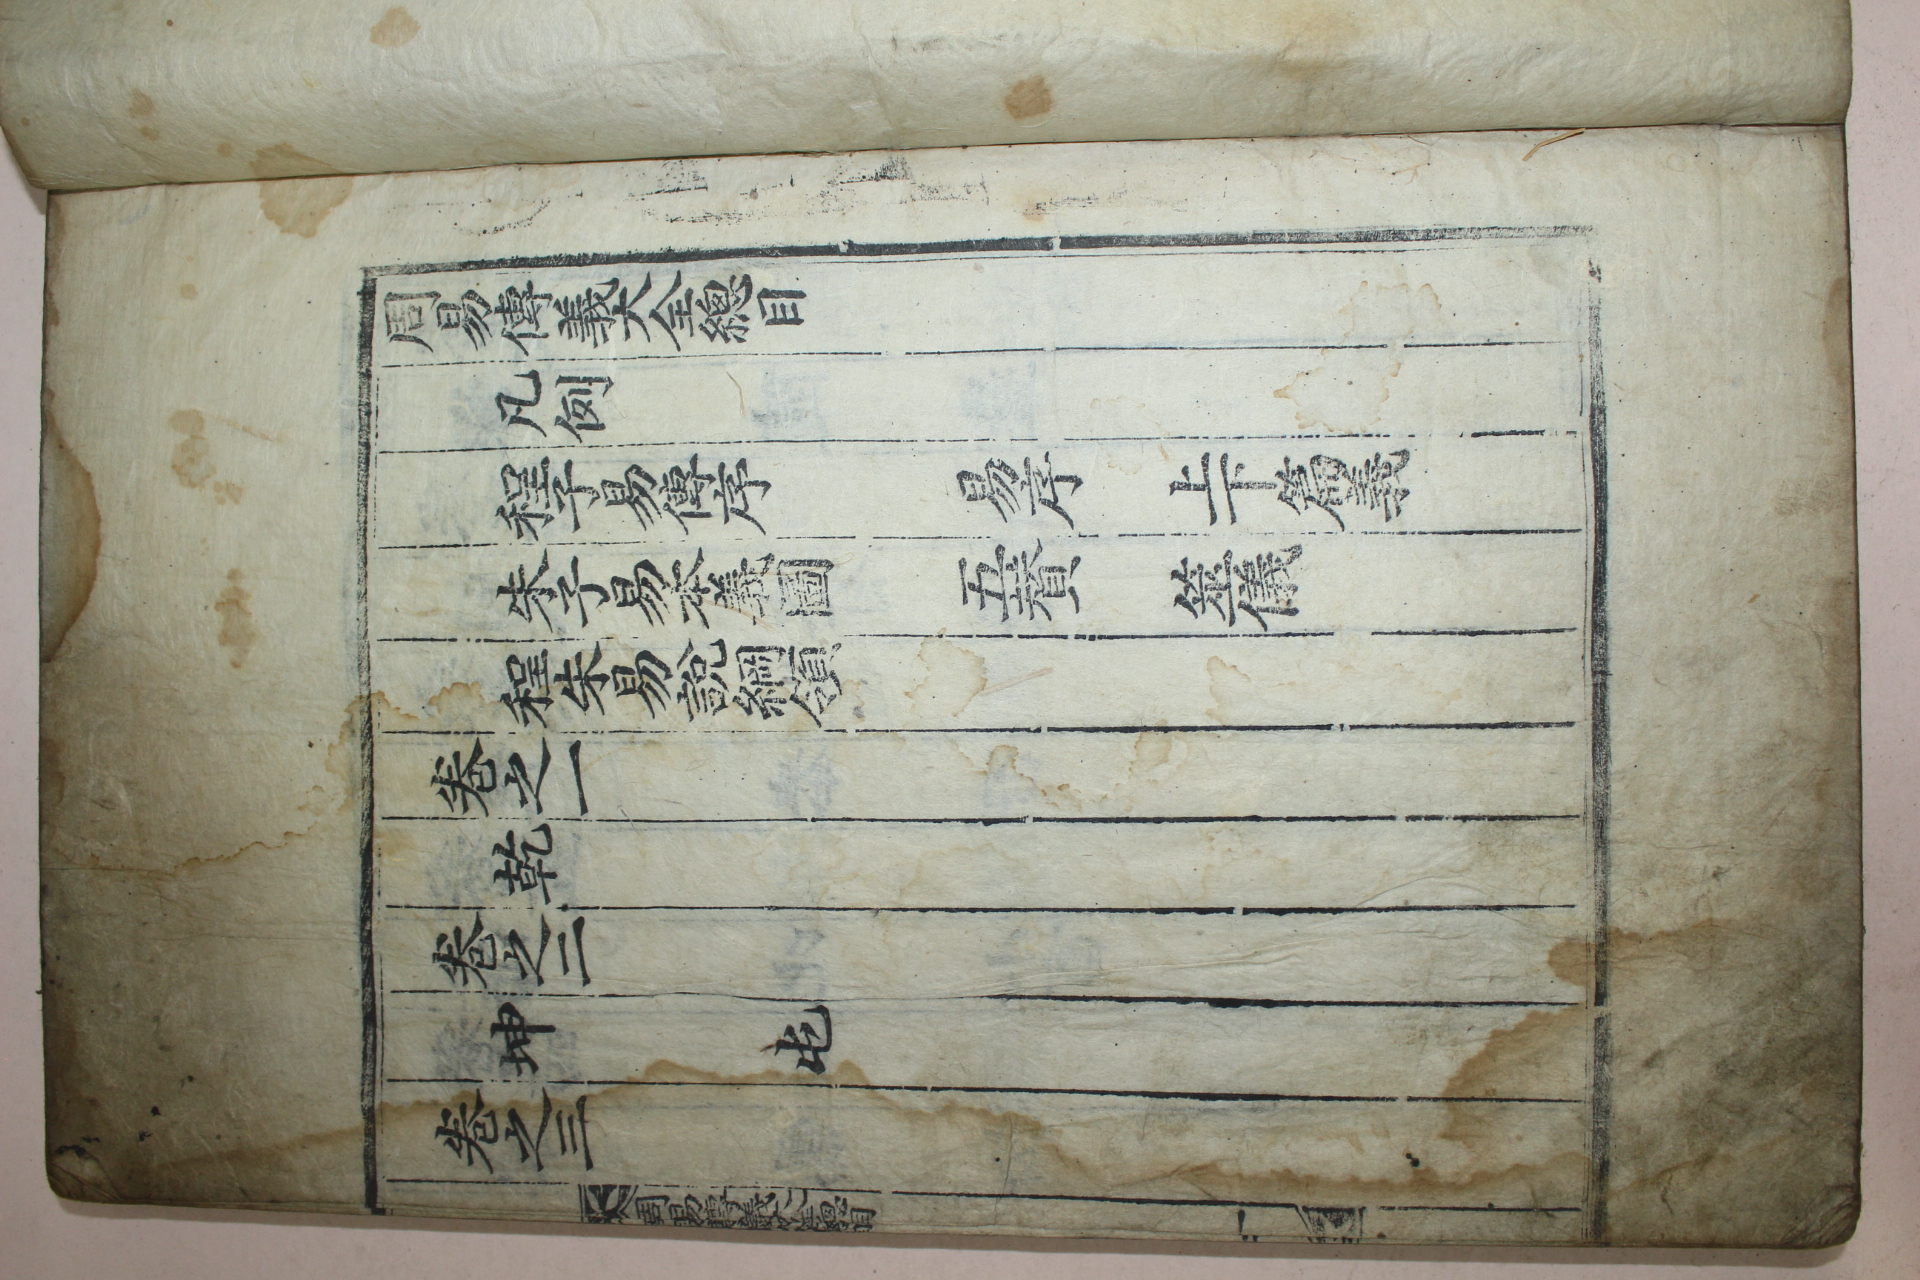 周易傳義大全總目
凡例
程子易傳序 易序 上下篇義
朱子易本義圖 五贊 筮儀
程朱易說綱領
卷之一
乾
卷之二
坤 屯
卷之三
周易傳義大全總目